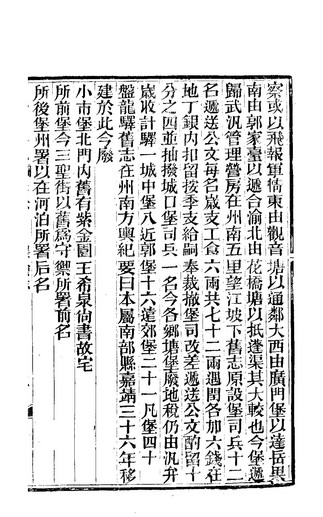 察或以飛報軍情東由觀音塘以通鄰大西由廣門堡以達岳果
南由郭家臺以遞合渝北由花橋塘以抵蓬渠其大較也今堡遞
歸武汛管理營房在州南五里望江坡下舊志原設堡司兵十二
名遞送公文每名歲支工食六兩共七十二兩遇閏各加六錢在
地丁銀內扣留按季支給嗣奉裁撤堡司改差遞送公文酌留十
分之四並抽撥城口堡司兵一名今各鄉塘堡廢地稅仍由汛弁
歲收計驛一城中堡八近郭堡十六遠郊堡二十一凡堡四十
盤龍驛舊志在州南方輿紀要曰本屬南部縣嘉靖三十六年移
建於此今廢
小市堡北門內舊有紫金園王希泉尚書故宅
所前堡今三聖街以舊為守禦所署前名
所後堡州署以在河泊所署后名